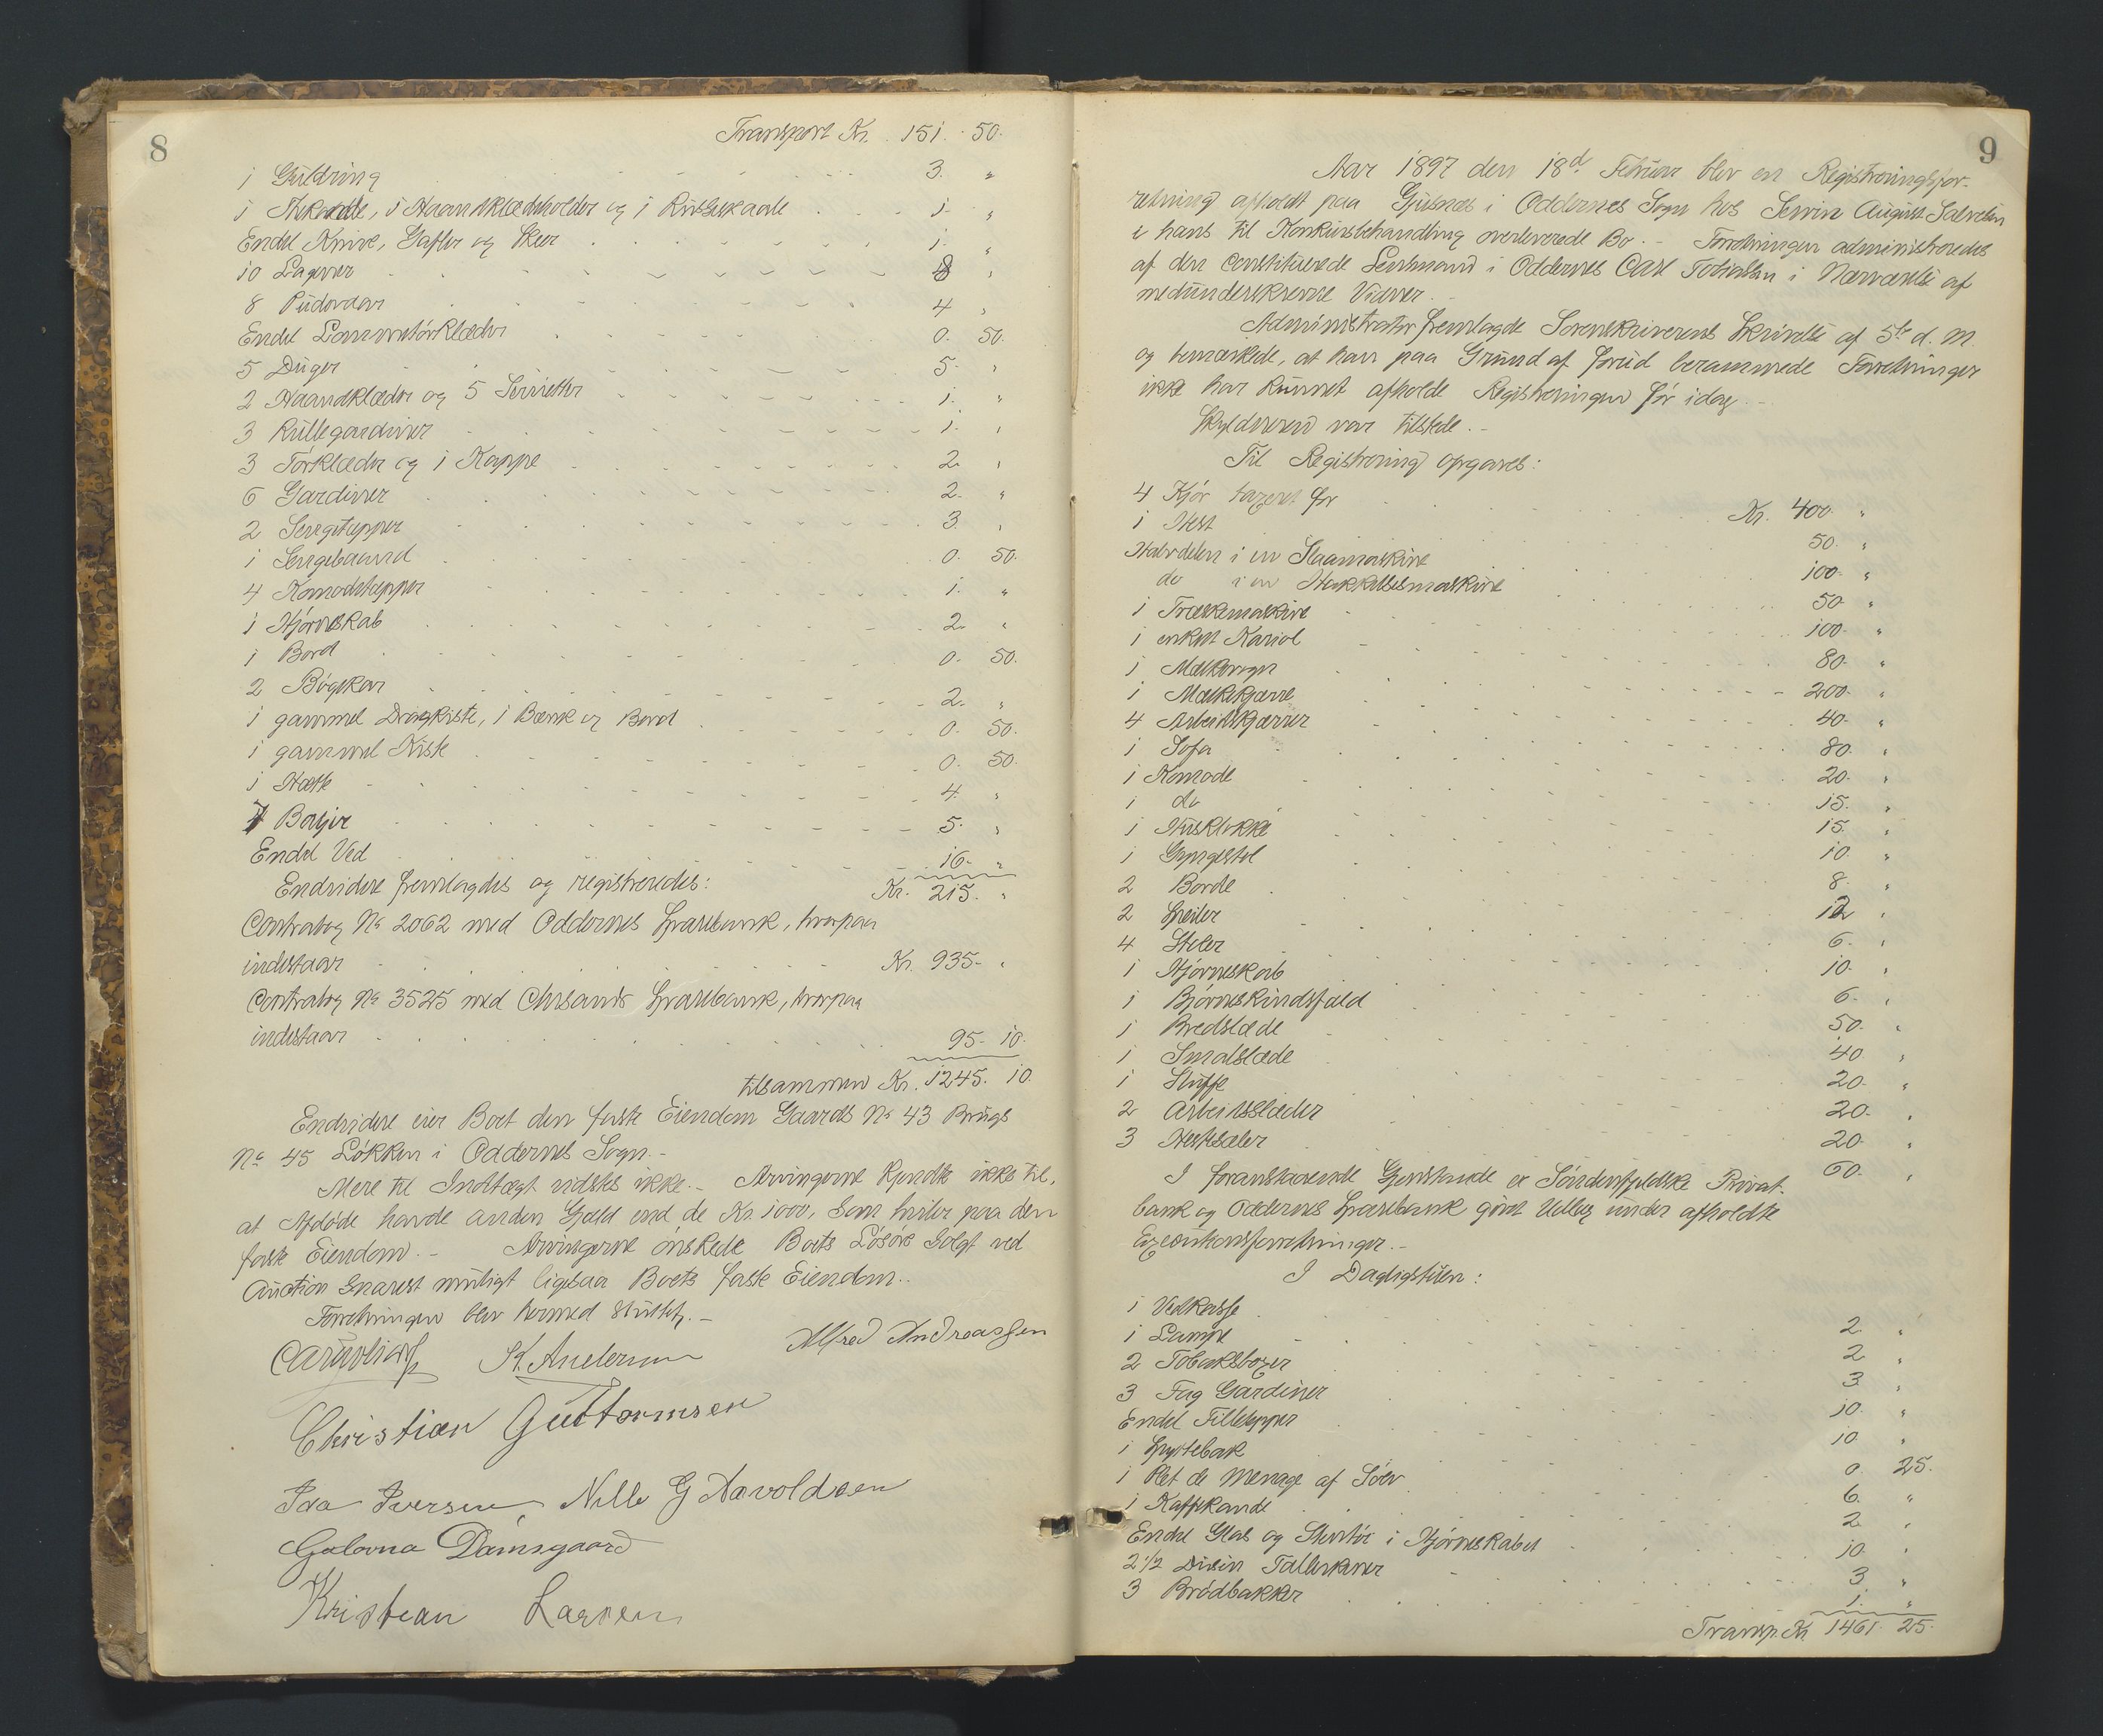 8
Transport Kr. 151. 50.
1 Guldring 3. "
1 , 1 Haandklædeholder og 1 1. "
Endel Knive, Gafler og Skeer 1. "
10 Lagener 8 "
8 Pudevaar 4 "
Endel Lommetørklæder 0. 50.
5 Duger 5. "
2 Haandklæder og 5 Servietter 1. "
3 Rullegardiner 1. "
3 Tørklæder og 1 Kappe 2. "
6 Gardiner 2. "
2 Sengetæpper 3. "
1 Sengebaand 0. 50.
4 Komodetæpper 1. "
1 Hjørneskab 2. "
1 Bord 0. 50.
2 Bøgekar 2. "
1 gammel Dragkiste, 1 Bænk og Bord 0. 50.
1 gammel Kiste 0. 50.
1 Hæsk 4. "
7 Bøljer 5. "
Endel Ved 16. "
Endvidere fremlagdes og registreredes: Kr. 215. "
Contrabog No 2062 med Oddernes Sparebank, hvorpaa
indestaar Kr. 935. "
Contrabog No 3525 med Chrsands Sparebank, hvorpaa
indestaar 95. 10.
tilsammen Kr. 1245. 10.
Endvidere eier Boet den faste Eiendom Gaards No 43 Brugs
No 45 Løkken i Oddernes Sogn.-
Mere til Indtægt vidstes ikke.- Arvingerne kjendte ikke til,
at Afdøde havde anden Gjæld end de Kr. 1000, som hviler paa den
faste Eiendom.- Arvingerne ønskede Boets Løsøre solgt ved
Auction snarest muligt ligesaa Boets faste Eiendom.
Forretningen blev hermed sluttet.-
K. Andersen Alfred Andreassen
Christian Guttormsen
Ida Iversen, Nille G Aavoldsen
Golovna Damsgaard
Kristian Larsen
9
Aar 1897 den 18d Februar blev en Registreringsfor-
retning afholdt paa i Oddernes Sogn hos August Salvesen
i hans til Konkursbehandling overleverede Bo.- Forretningen administreredes
af den constituerede Lensmand i Oddernes Carl Tobiassen i Nærværelse af
medunderskrevne Vidner.
Administrator fremlagde Sorenskriverens Skrivelse af 5te d. M.
og bemærkede, at han paa Grund af forud berammede Forretninger
ikke har kunnet afholde Registreringen før idag.-
Skyldneren var tilstede.-
Til Registrering opgaves:
4 Kjør taxeret for Kr. 400. "
1 Hest 50. "
Halvdelen i en Slaamaskine 100. "
do i en Hakkelsesmaskine 50. "
1 Træskemaskine 100. "
1 enkelt Kariol 80. "
1 Melkevogn 200. "
1 Melkekjærre 40. "
4 Arbeidskjærrer 80. "
1 Sofa 20. "
1 Komode 15. "
1 do 15. "
1 Husklokke 10. "
1 Gyngestol 8. "
2 Borde 12 "
2 Speiler 6. "
4 Stoler 10. "
1 Hjørneskab 6. "
1 Bjørneskindsfæld 50. "
1 Bredslæde 40. "
1 Smalslæde 20. "
1 Sluffe 20. "
2 Arbeidsslæder 20. "
3 Hestesæler 60. "
I foranstaaende Gjenstande er Søndenfjeldske Privat-
bank og Oddernes Sparebank gjort Udlæg under afholdte
Executionsforretninger.-
I Dagligstuen:
1 Vedkasse 2. "
1 Lampe 2. "
2 Tobaksboxer 3. "
3 Fag Gardiner 10. "
Endel Filletæpper 10. "
1 Spyttebak 0. 25.
1 Plet de Menage af Sølv 6. "
1 Kaffekande 2. "
Endel Glas og Stentøi i Hjørneskabet 10. "
2 1/2 Dusin Tallerkener 3. "
3 Brødbakker 1. "
Transp. Kr. 1461. 25.